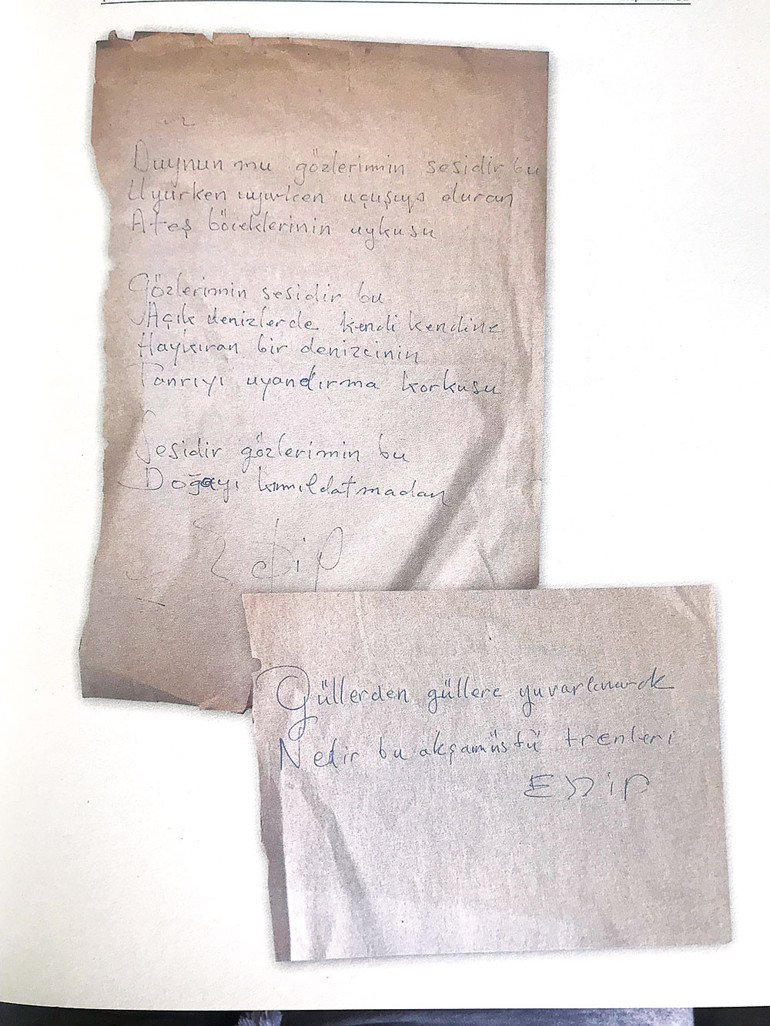 Duynun mu gözlerimin sesidir bu
Uyurken uyurken uçuşup duran
Ateş böceklerinin uykusu
Gözlerimin sesidir bu
Açık denizlerde kendi kendine
Haykıran bir denizcinin
Tanrıyı uyandırma korkusu
Sesidir gözlerimin bu
Doğayı kımıldatmadan
Edip
Güllerden güllere yuvarlanarak
Nedir bu akşamüstü trenleri
EDİP